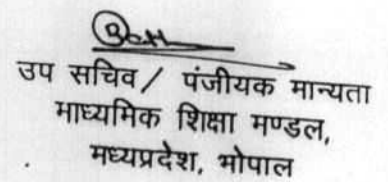 उप सचिव/ पंजीयक मान्यता
माध्यमिक शिक्षा मण्डल,
मध्यप्रदेश, भोपाल